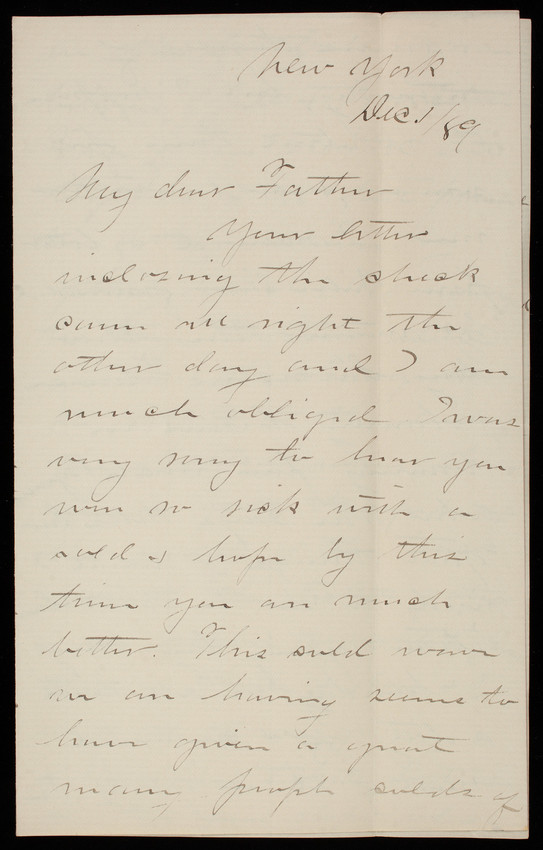 New York
Dec 1/89
My dear Father
Your letter
inclosing the check
came all right the
other day and I am
much obliged. I was
very sorry to hear you
were so sick with a
cold & hope by this
time you are much
better. This cold wave
we are having seems to
have given a great
many people colds of